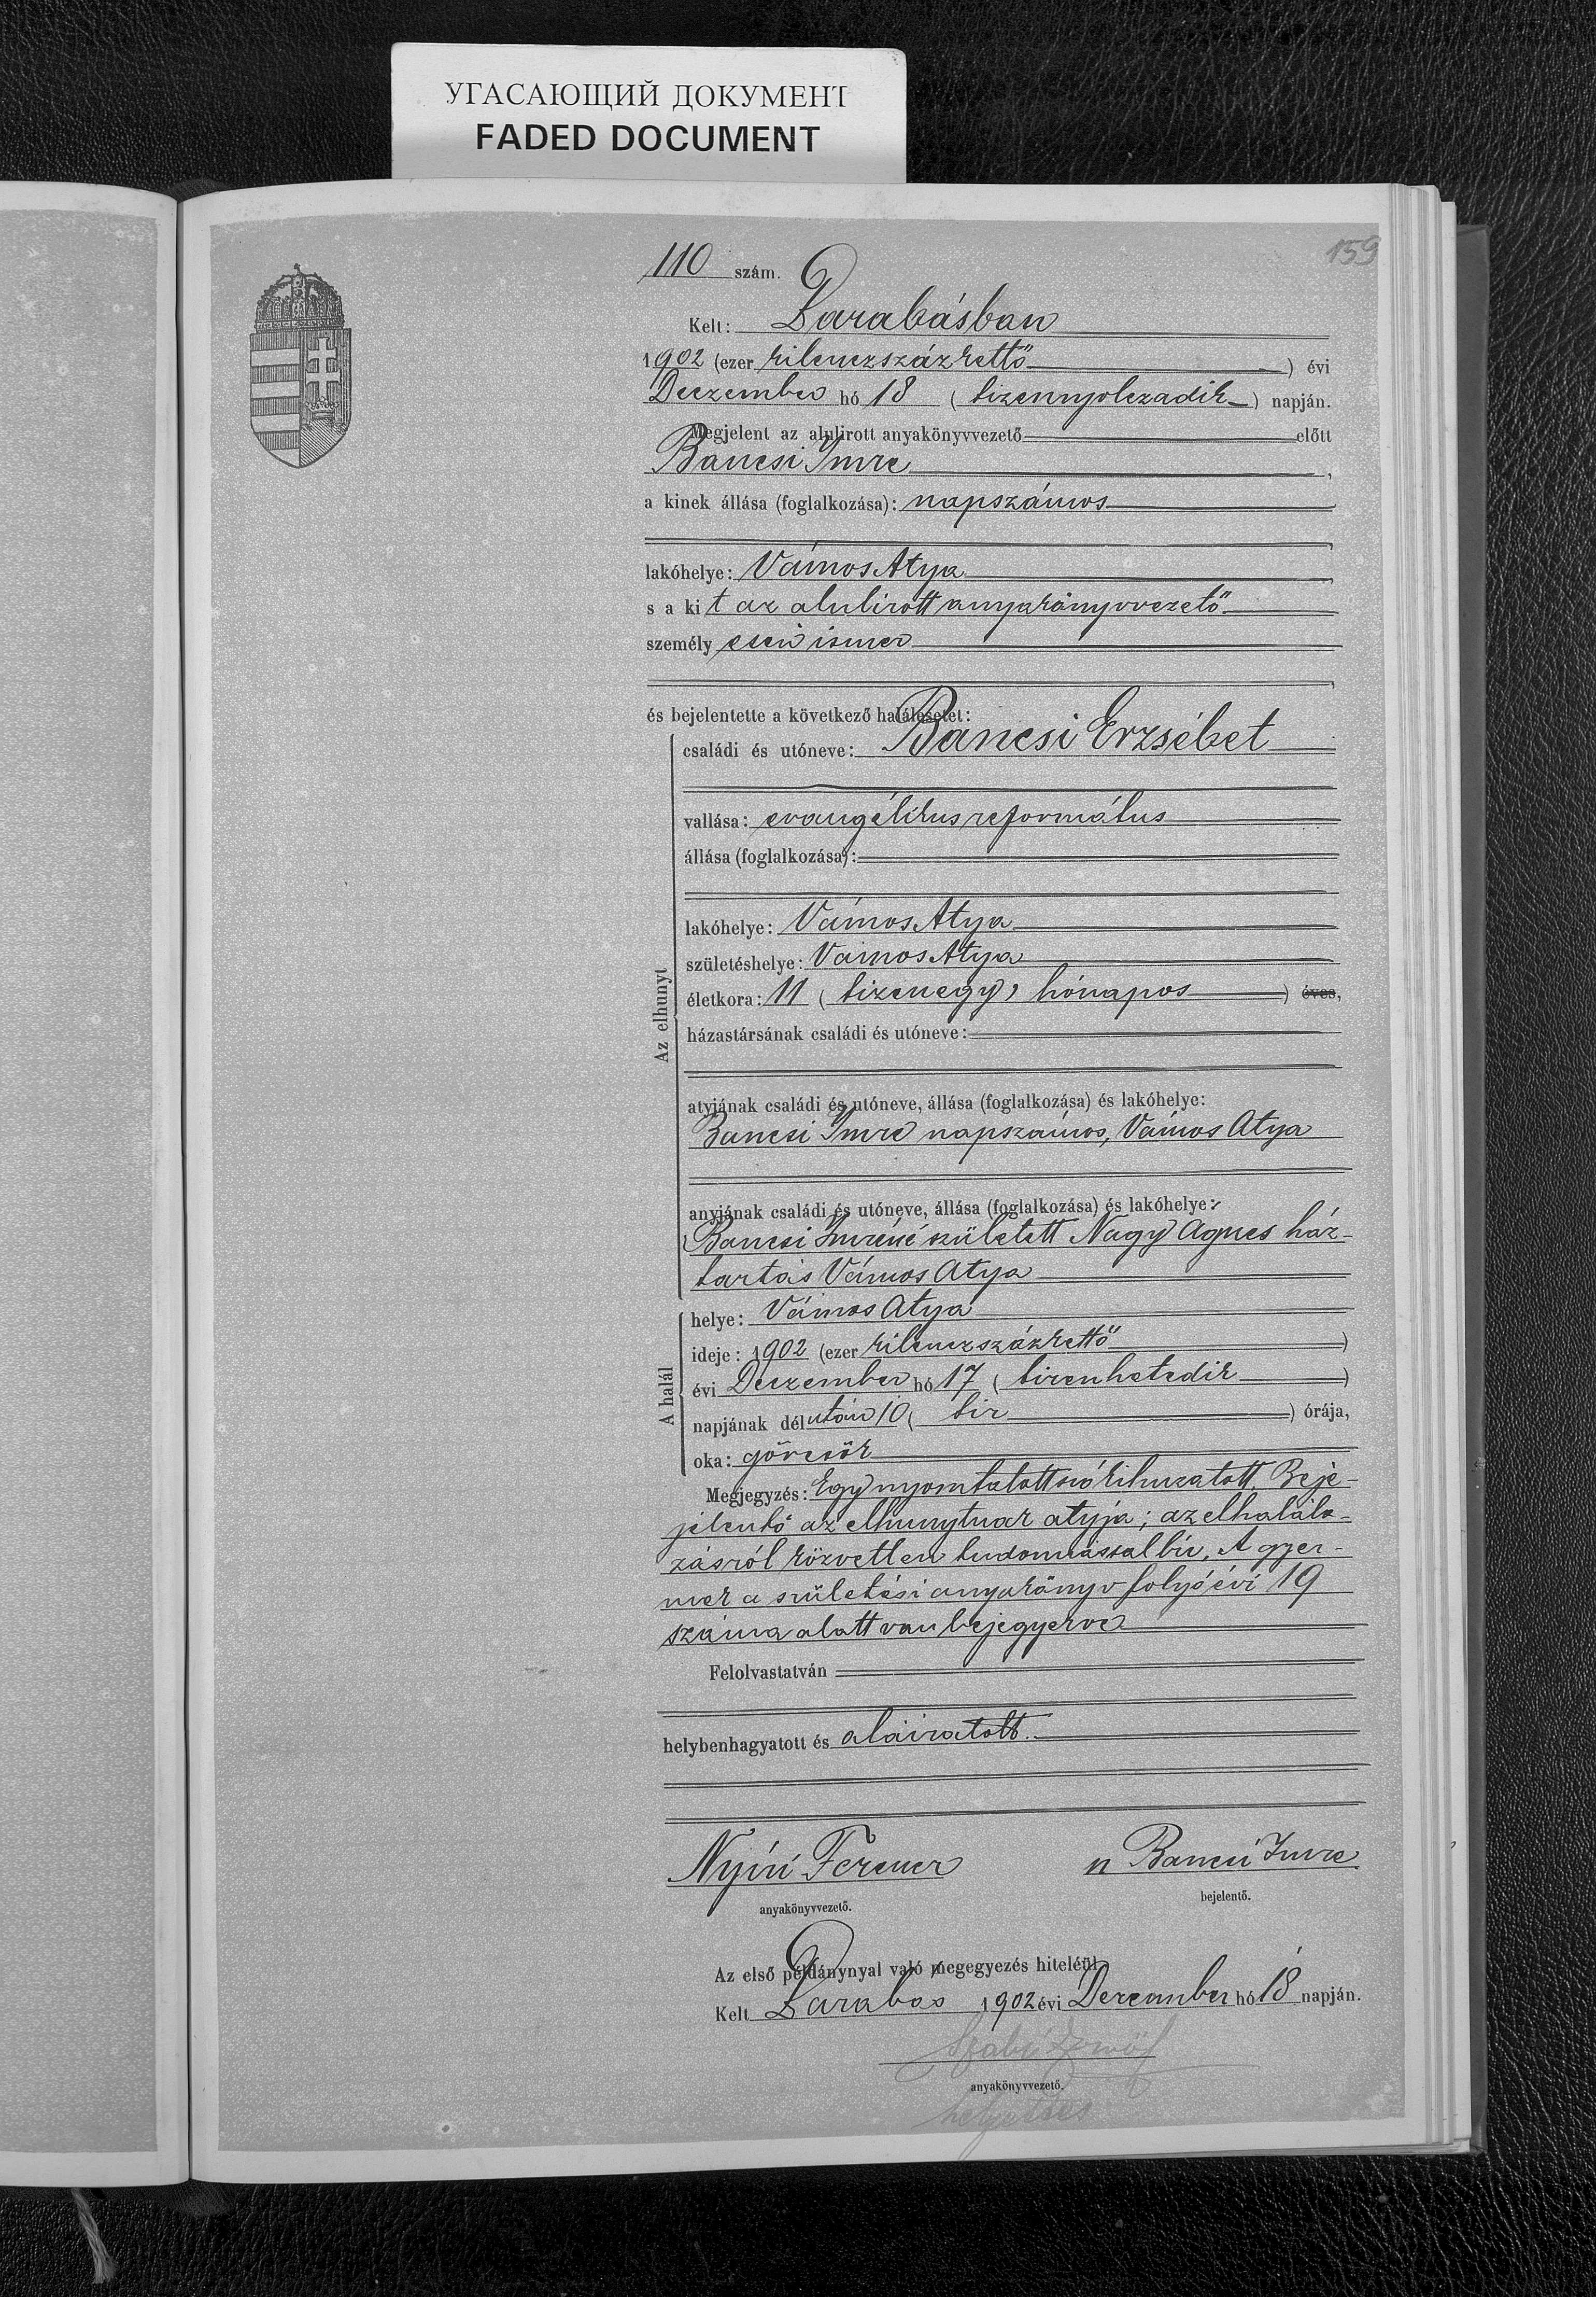 УГАСАЮЩИЙ ДОКУМЕНТ
FADED DOCUMENT
159
110 szám.
Kelt: Darabásban
1902 (ezer kilenczszázkettő) évi
Deczember hó 18 (tizennyolczadik) napján.
Megjelent az alulirott anyakönyvvezető előtt
Bancsi Imre,
a kinek állása (foglalkozása): napszámos
lakóhelye: Vámos Atya
s a kit az alulirott anyakönyvvezető
személyesen ismer
és bejelentette a következő halálesetet:
Az elhunyt
családi és utóneve: Bancsi Erzsébet
vallása: evangélikus református
állása (foglalkozása):
lakóhelye: Vámos Atya
születéshelye: Vámos Atya
életkora: 11 (tizenegy) hónapos) éves,
házastársának családi és utóneve:
atyjának családi és utóneve, állása (foglalkozása) és lakóhelye:
Bancsi Imre napszámos, Vámos Atya
anyjának családi és utóneve, állása (foglalkozása) és lakóhelye:
Bancsi Imréné született Nagy Agnes ház-
tartás Vámos Atya
A halál
helye: Vámos Atya
ideje: 1902 (ezer kilenczszázkettő)
évi Deczember hó 17 (tizenhetedik)
napjának délután 10 (tiz) órája,
oka: görcsök
Megjegyzés: Egy nyomtatott szó kihuzatott. Beje-
jelentő az elhunytnak atyja; az elhalálo-
zásról közvetlen tudomással bir. A gyer-
mek a születési anyakönyv folyó évi 19
száma alatt van bejegyezve
Felolvastatván
helybenhagyatott és aláiratott.
Nyiri Ferencz
anyakönyvvezető.
Bancsi Imre
bejelentő.
Az első példánynyal való megegyezés hiteléül.
Kelt Darabás 1902 évi Deczember hó 18 napján.
Szabó
anyakönyvvezető.
helyettes